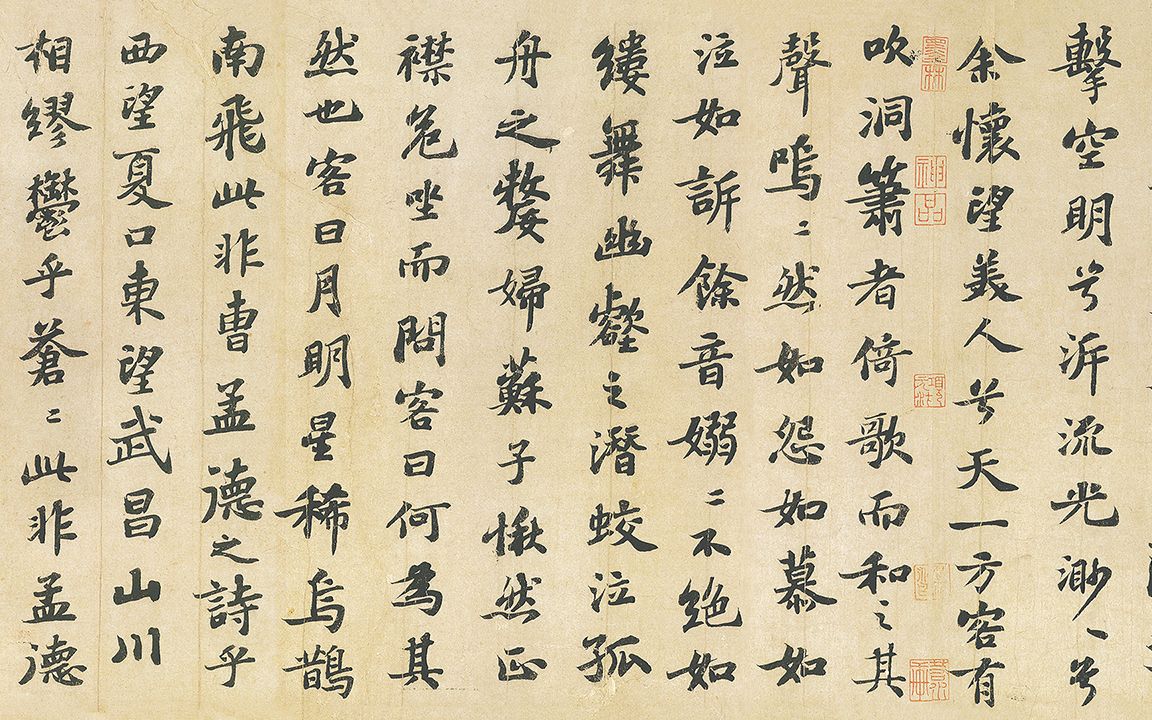 擊空明兮泝流光渺〻兮
余懷望美人兮天一方客有
吹洞簫者倚歌而和之其
聲嗚〻然如怨如慕如
泣如訴餘音嫋〻不絕如
縷舞幽壑之潛蛟泣孤
舟之嫠婦蘇子愀然正
襟危坐而問客曰何為其
然也客曰月明星稀烏鵲
南飛此非曹孟德之詩乎
西望夏口東望武昌山川
相繆鬱乎蒼〻此非孟德